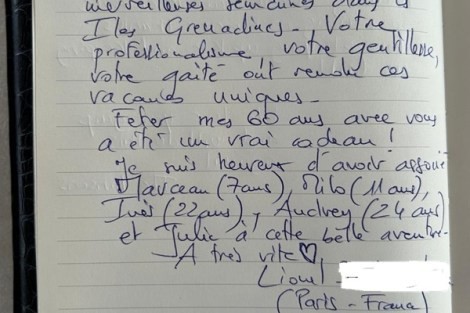 merveilleuses semaines dans les
Iles Grenadines. Votre
professionalisme, votre gentillesse,
votre gaité ont rendu ces
vacances uniques.
Feter mes 60 ans avec vous
a été un vrai cadeau !
Je suis heureux d'avoir associé
Marceau (7ans), Milo (11 ans),
Inès (22 ans), Audrey (24 ans)
et Julie à cette belle aventure.
A très vite ♡
Lionel
(Paris - France)